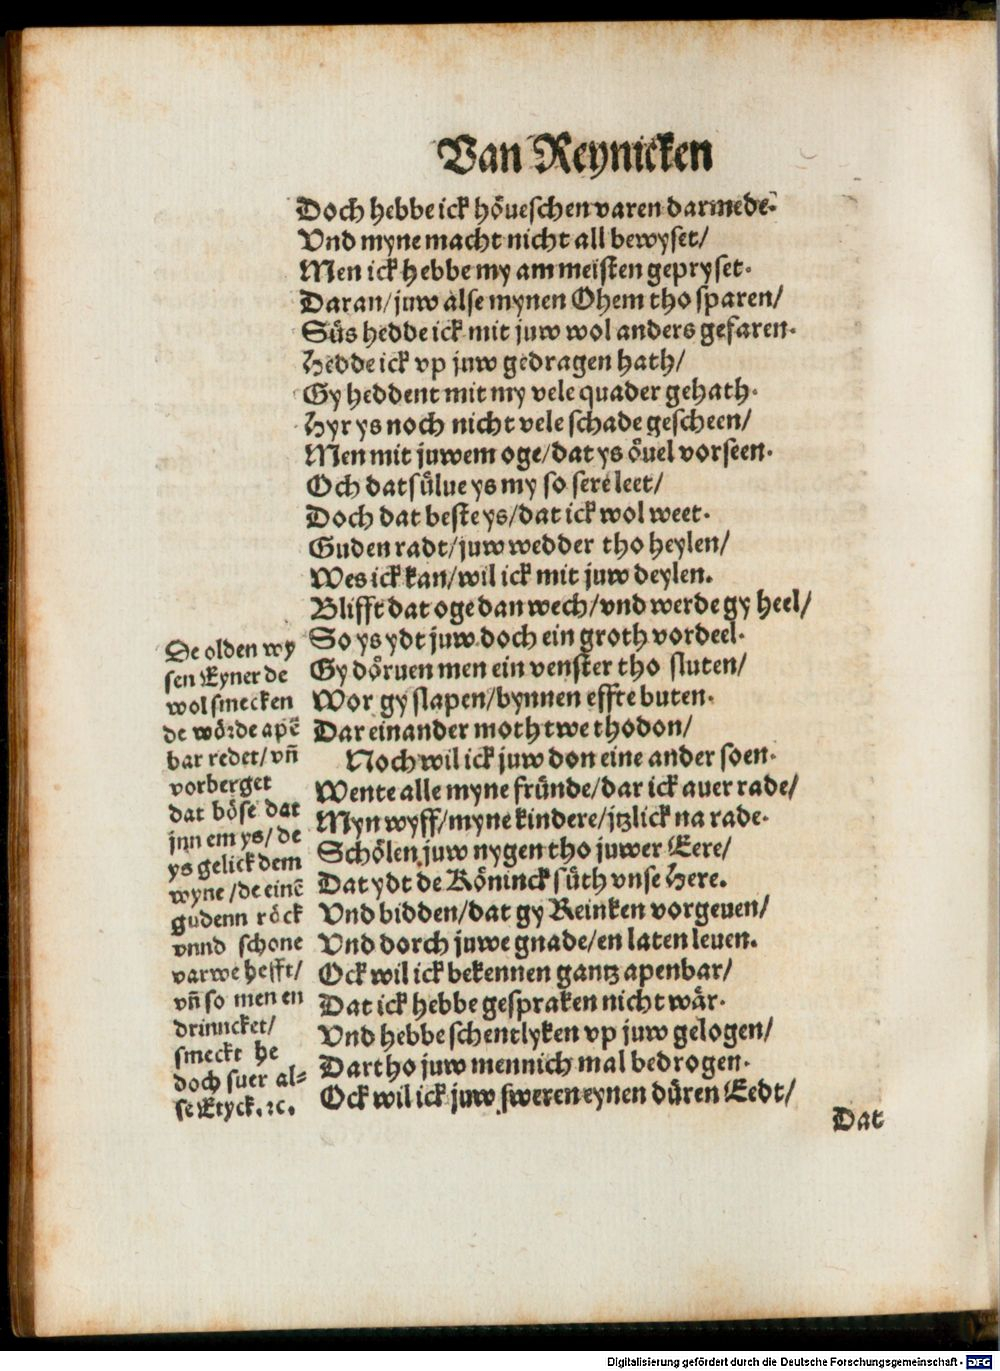 Van Reynicken
Doch hebbe ick höueschen varen darmede.
Vnd myne macht nicht all bewyset/
Men ick hebbe my am meisten gepryset.
Daran/juw alse mynen Ohem tho sparen/
Süs hedde ick mit juw wol anders gefaren.
Hedde ick vp juw gedragen hath/
Gy heddent mit my vele quader gehath.
Hyr ys noch nicht vele schade gescheen/
Men mit juwem oge/dat ys öuel vorseen.
Och datsülue ys my so sere leet/
Doch dat beste ys/dat ick wol weet.
Guden radt/juw wedder tho heylen/
Wes ick kan/wil ick mit juw deylen.
Blifft dat oge dan wech/vnd werde gy heel/
So ys ydt juw doch ein groth vordeel.
Gy döruen men ein venster tho sluten/
Wor gy slapen/bynnen effte buten.
Dar einander moth twe thodon/
Noch wil ick juw don eine ander soen.
Wente alle myne fründe/dar ick auer rade/
Myn wyff/myne kindere/jtzlick na rade.
Schölen juw nygen tho juwer Eere/
Dat ydt de Köninck süth vnse Here.
Vnd bidden/dat gy Reinken vorgeuen/
Vnd dorch juwe gnade/en laten leuen.
Ock wil ick bekennen gantz apenbar/
Dat ick hebbe gespraken nicht wär.
Vnd hebbe schentlyken vp juw gelogen/
Dartho juw mennich mal bedrogen.
Ock wil ick juw sweren eynen düren Eedt/
De olden wy
sen Eyner de
wol smecken
de wörde apē
bar redet/vñ
vorberget
dat böse dat
jnn em ys/de
ys gelick dem
wyne/de einē
gudenn röck
vnnd schone
varwe hefft/
vñ so men en
drinncket/
smeckt he
doch suer al⸗
se Etyck.ꝛc.
Dat
Digitalisierung gefördert durch die Deutsche Forschungsgemeinschaft - DFG